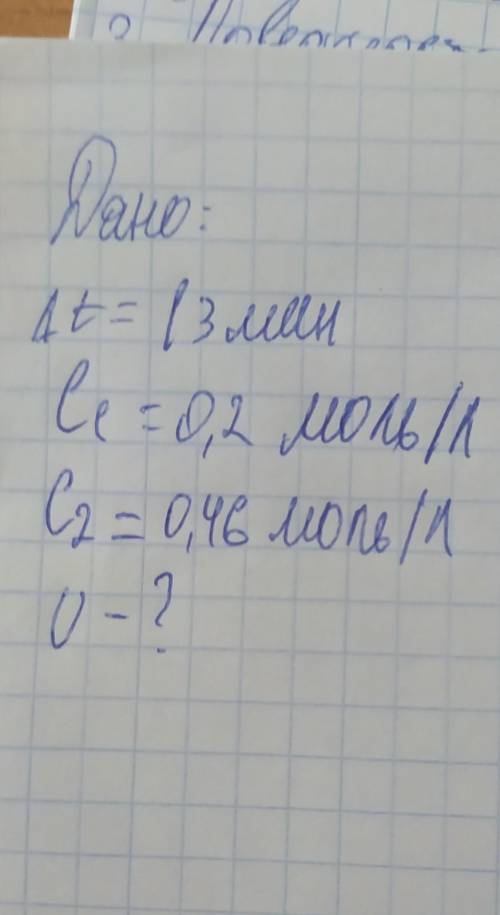 Дано:
Δt = 13 мин
C₁ = 0,2 моль/л
C₂ = 0,46 моль/л
υ - ?